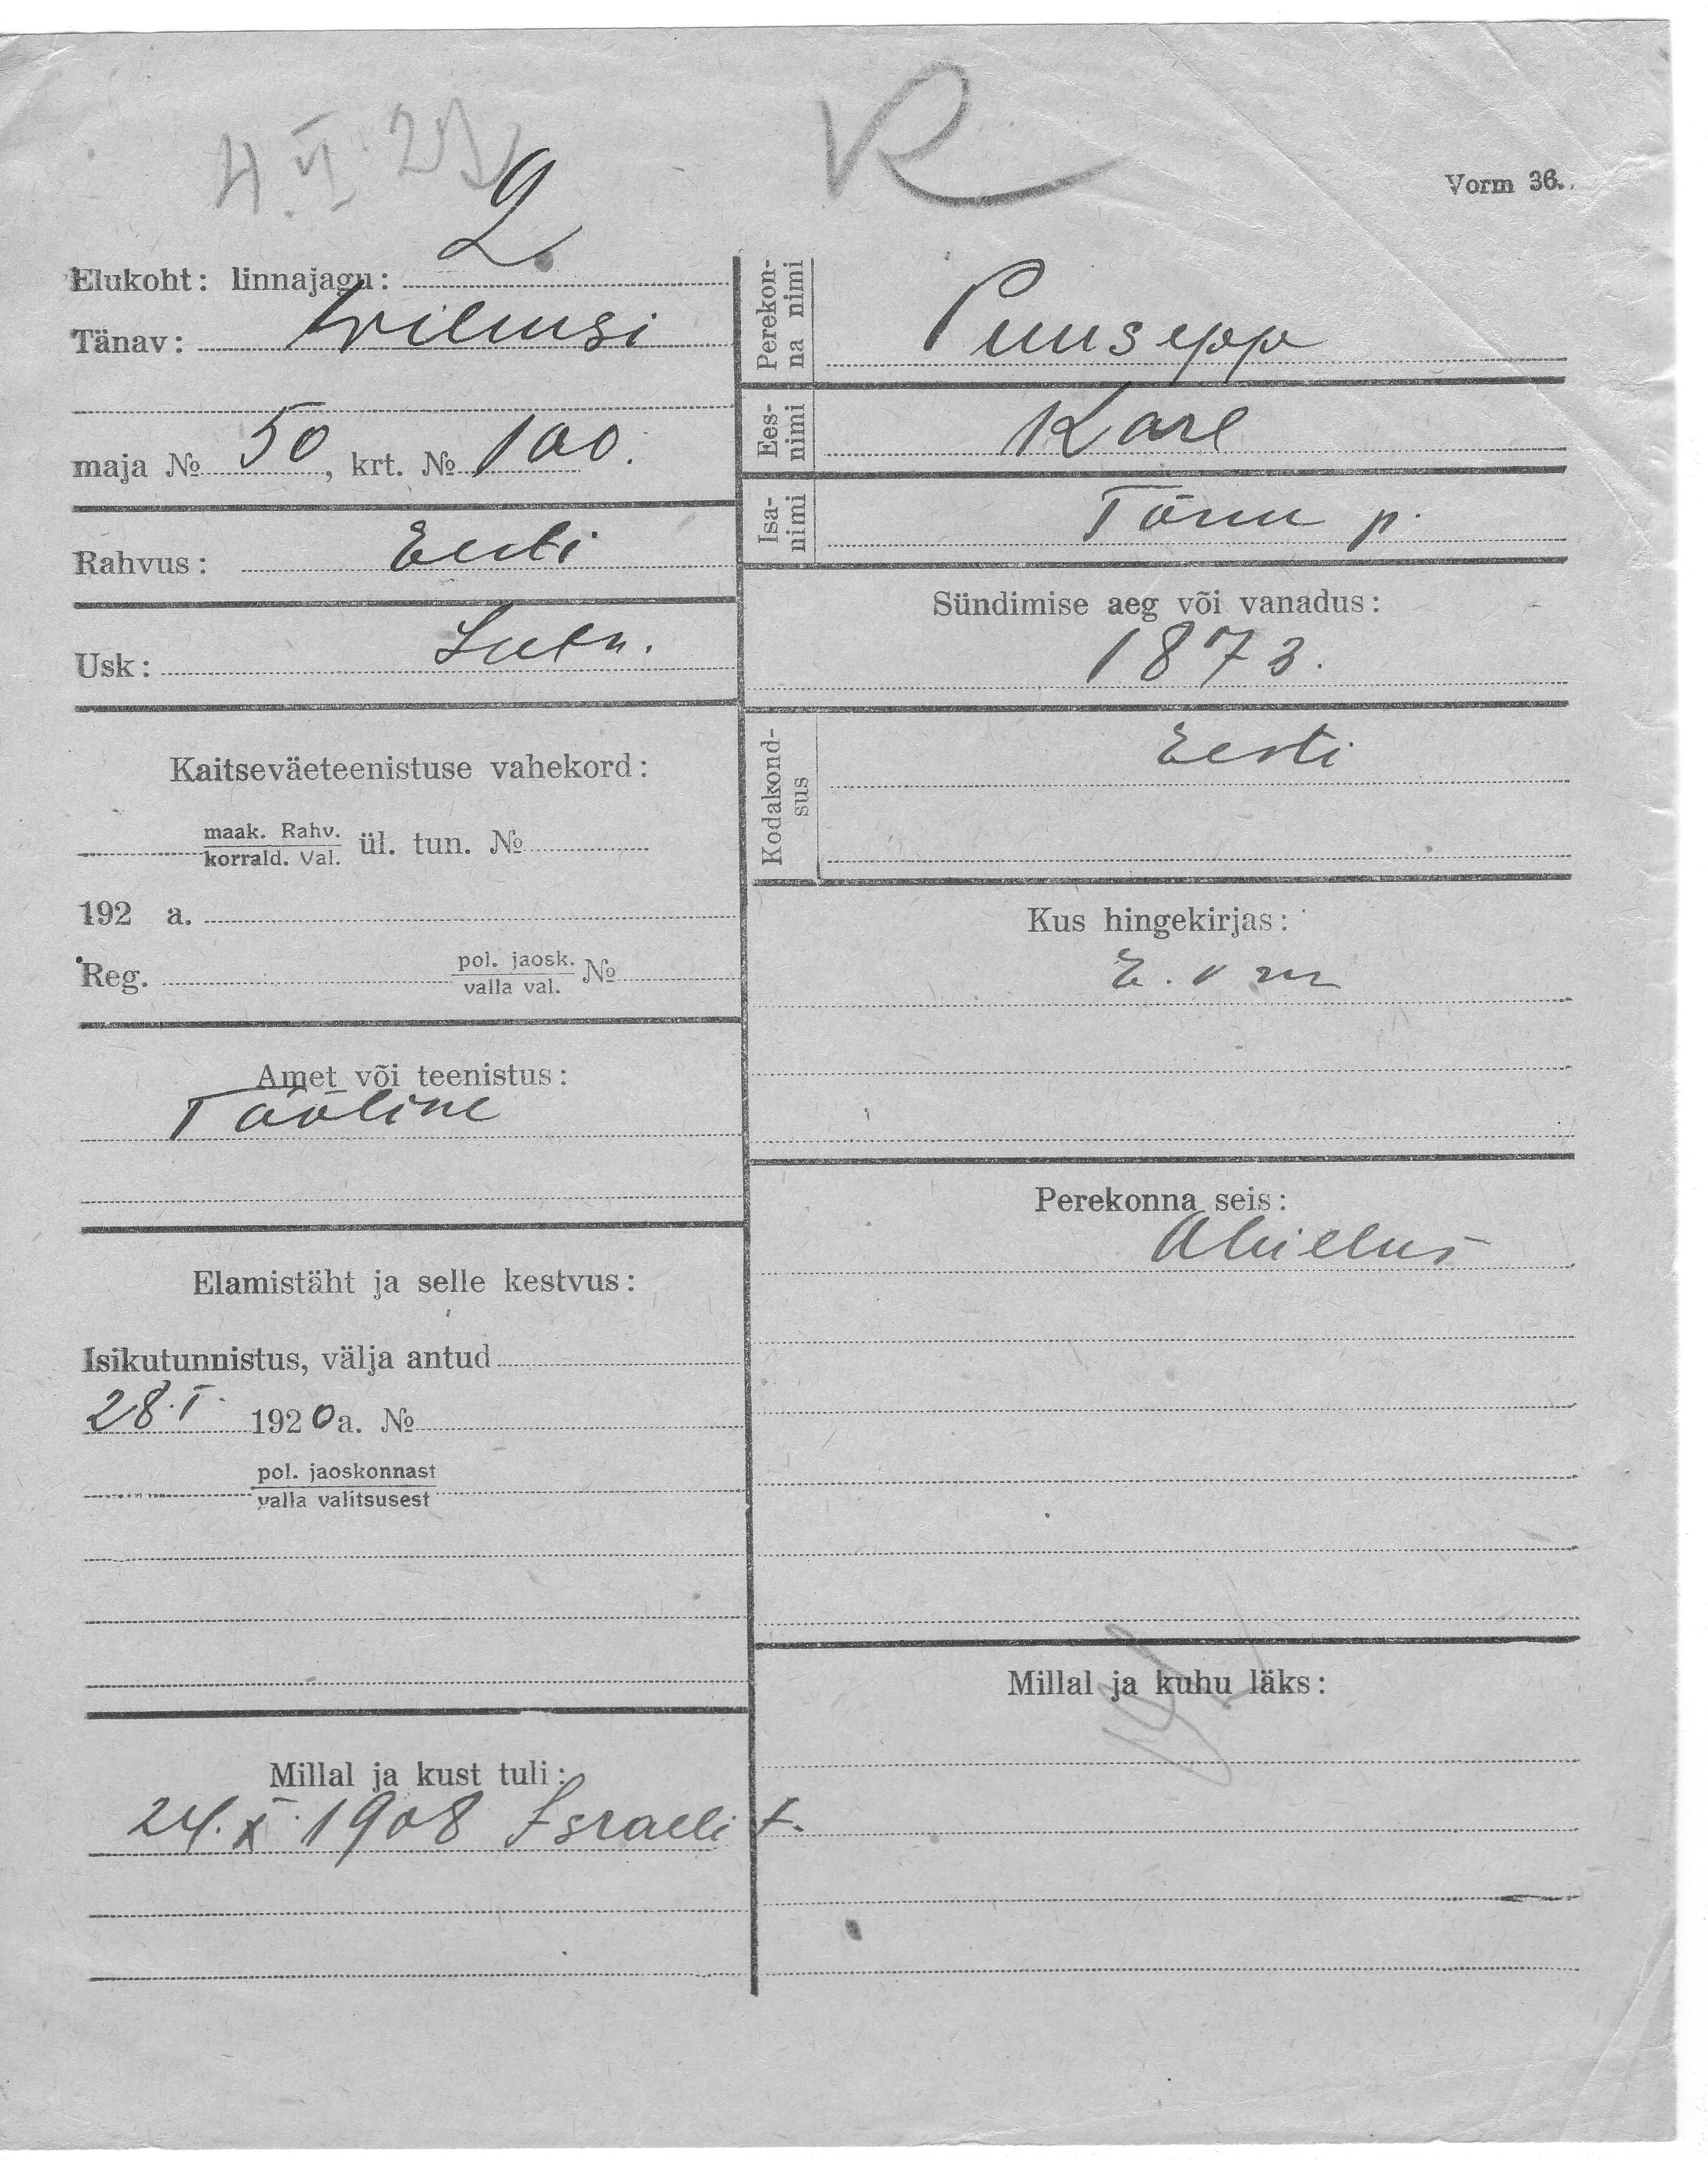 4. VI 23
R
Vorm 36.
Elukoht: linnajagu: 2.
Tänav: Wilmsi
maja № 50, krt. № 100.
Rahvus: Eesti
Usk: Luth.
Kaitseväeteenistuse vahekord:
maak. Rahv.
korrald. Val. ül. tun. №
192 a.
Reg. pol. jaosk. №
valla val.
Amet või teenistus:
Tööline
Elamistäht ja selle kestvus:
Isikutunnistus, välja antud
28. I. 1920 a. №
pol. jaoskonnast
valla valitsusest
Millal ja kust tuli:
24. X. 1908 Israeli t.
Perekon-
na nimi
Puusepp
Ees-
nimi
Karl
Isa-
nimi
Tõnu p.
Sündimise aeg või vanadus:
1873.
Kodakond-
sus
Eesti
Kus hingekirjas:
Perekonna seis:
Abielus
Millal ja kuhu läks: